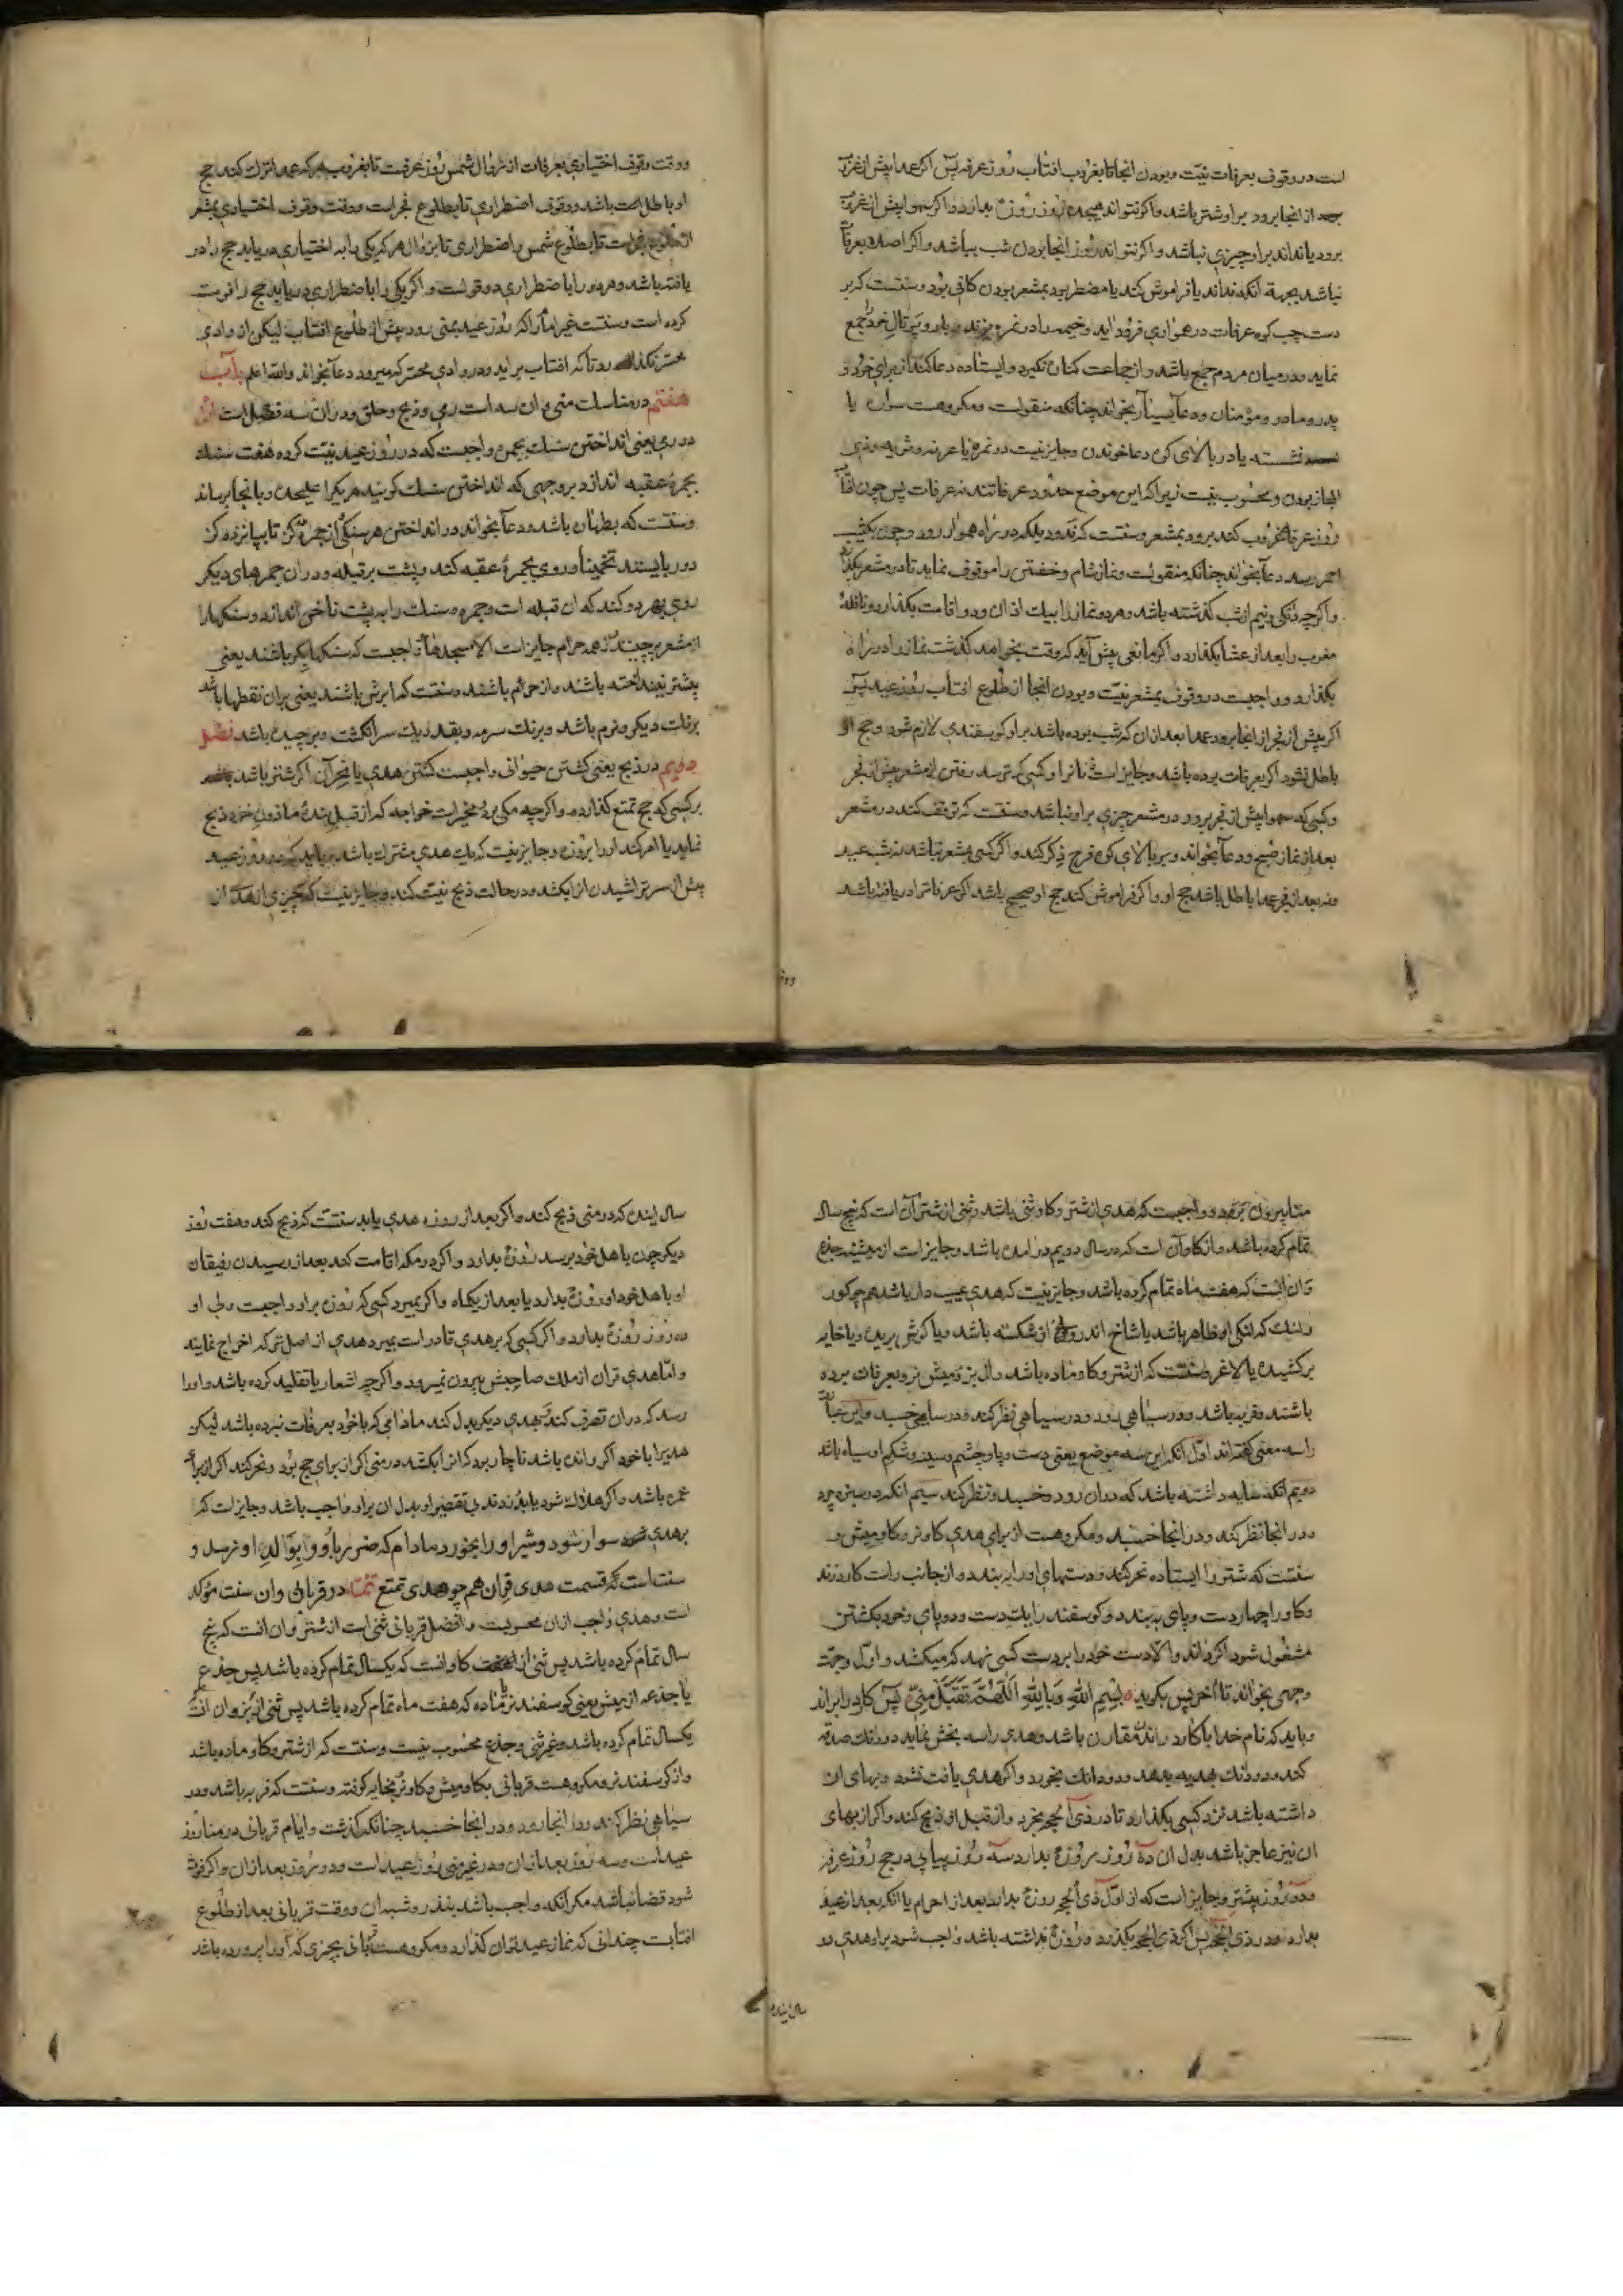 است در وقوف بعرفات نیّت و بودن انجا تا بغروب افتاب روز عرفه پس اکر عمدا پیش از غروب
از انجا برود بر او شتر باشد و اکر نتواند هیجده روز روزه بدارد و اکر سهوا پیش از غروب
برود یا نداند بر او چیزی نباشد و اکر نتواند روز انجا بودن شب بباشد و اکر اصلا بعرفات
نباشد بجهة آنکه نداند یا فراموش کند یا مضطر بود بمشعر بودن کافی بود و سنتست که بر
دست چپ کوه عرفات در همواری فرود آید و خیمه را در نمره بزند و بار و پرتال خود جمع
نماید و در میان مردم جمع باشد و از جماعت کنار نکیرد و ایستاده دعا کند از برای خود و
پدر و مادر و مؤمنان و دعا بخواند چنانکه منقولست و مکروهست سواره یا
نشسته یا در بالای کوه دعا خوندن و جایز نیست در نمره یا عرنه و ثویه و ذی
المجاز بودن و محسوب نیست زیرا که این موضع حدود عرفاتند نه عرفات پس چون افتاب
روز عرفه غروب کند برود بمشعر و سنتست که ندود بلکه در راه هموار رود و چون بکثیب
احمر رسد دعا بخواند چنانکه منقولست و نماز شام و خفتن را موقوف نماید تا در مشعر بکذارد
و اکرچه دنکی و نیم از شب کذشته باشد و هر دو نماز را بیک اذان و دو اقامت بکذارد و نافلهٔ
مغرب را بعد از عشا بکذارد و اکر مانعی پیش آید که وقت بخواهد کذشت نماز را در راه
بکذارد و واجبست در وقوف بمشعر نیّت و بودن انجا از طلوع افتاب روز عید پس
اکر پیش از فجر از انجا برود عمدا بعد از ان که شب بوده باشد بر او کوسفندی لازم شود و حج او
باطل نشود اکر بعرفات بوده باشد و جایز است زنانرا و کسی که ترسد رفتن از مشعر پیش از فجر
و کسی که سهوا پیش از فجر برود در مشعر چیزی بر او نباشد و سنتست که توقف کند در مشعر
بعد از نماز صبح و دعا بخواند و بر بالای کوه قزح ذکر کند و اکر کسی بمشعر نباشد نه شب عید
و نه بعد از فجر عمدا باطل باشد حج او و اکر فراموش کند حج او صحیح باشد اکر عرفات را دریافته باشد
و وقت وقوف اختیاری بعرفات از زوال شمس روز عرفست تا بغروب هر که عمدا ترک کند حج
او باطل است باشد و وقوف اضطراری تا بطلوع فجرست و وقت وقوف اختیاری بمشعر
از طلوع فجرست تا بطلوع شمس و اضطراری تا بزوال هر که یکی را به اختیاری دریابد حج را در
یافته باشد و هر دو را با ضطراری دو قولست و اکر یکی را با ضطراری دریابد حج را فوت
کرده است و سنتست غیر امام را که روز عید بمنی رود پیش از طلوع افتاب لیکن از وادی
محسر نکذرد تا که افتاب براید و در وادی محسر که میرود دعا بخواند والله اعلم باب
هفتم در مناسک منی و ان سه است رمی و ذبح و حلق و در ان سه فصل است اول
در رمی یعنی انداختن سنک بجمره واجبست که در روز عید نیّت کرده هفت سنک
بجمرهٔ عقبه اندازد بر وجهی که انداختن سنک کویند هر یک را علیحده و بانجا برساند
و سنتست که بطهارت باشد و دعا بخواند در انداختن هر سنکی از جمره ده کز تا پپانزده کز
دور بایستند تخمینا و روی بجمرهٔ عقبه کند و پشت بر قبله و در ان جمرهای دیکر
روی بهر دو کند که ان قبله است و جمره و سنک را بر پشت ناخن اندازد و سنکها را
از مشعر برچیند و از همه حرام جایز است الا مسجدها و واجبست که سنکها بکر باشند یعنی
پیشتر نینداخته باشند و از حرم باشند و سنتست که ابرش باشند یعنی بران نقطها باشد
برنک دیکر و نرم باشد و برنک سرمه و بقدر یک سر انکشت و برچیده باشد فصل
دویم در ذبح یعنی کشتن حیوانی واجبست کشتن هدی یا نحر آن اکر شتر باشد
بر کسی که حج تمتع کذارده و اکرچه مکی بود مخیرست خواجه که از قبل بندهٔ ماذون خود ذبح
نماید یا امر کند او را بروزه و جایز نیست که یک هدی مشترک باشد و باید که در روز عید
پیش از سر تراشیدن انرا بکشد و در حالت ذبح نیت کند و جایز نیست که چیزی از هدی از
منا بیرون برد و واجبست که هدی از شتر و کاو ثنی باشد و ثنی از شتر آن است که پنج سال
تمام کرده باشد و از کاو آن است که در سال دویم درامده باشد و جایز است از میش جذع
و آن انست که هفت ماه تمام کرده باشد و جایز نیست که هدی عیب دار باشد همچو کور
و لنک که لنکی او ظاهر باشد یا شاخ اندرونی ان شکسته باشد و یا کوش بریده و یا خایه
برکشیده یا لاغر و سنتست که از شتر و کاو ماده باشد و از بز و میش نر و بعرفات برده
باشند و فربه باشد و در سیاهی رود و در سیاهی نظر کند و در سیاهی خسبد و این عبارت
را سه معنی کفته‌اند اول آنکه این سه موضع یعنی دست و پا و چشم و سینه و شکم او سیاه باشد
دویم انکه سایه داشته باشد که دران رود و خسبد و نظر کند سیم انکه در سبزه چرد
و در انجا نظر کند و در انجا خسبد و مکروهست از برای هدی کاو نر و کاومیش و
سنتست که شتر را ایستاده نحر کند و دستهای او را ببندد و از جانب راست کارد زند
و کاو را چهار دست و پای ببندد و کوسفند را یک دست و دو پای و خود بکشتن
مشغول شود اکر داند والا دست خود را بر دست کسی نهد که میکشد و اول وجهت
وجهی بخواند تا اخر پس بکوید بسم الله وبالله اللهم تقبل منی پس کارد را براند
و باید که نام خدا با کارد راندن مقارن باشد و هدی را سه بخش نماید دو دانک صدقه
کند و دو دنک بهدیه بدهد و دو دانک بخورد و اکر هدی یافت نشود و بهای ان
داشته باشد نزد کسی بکذارد تا در ذی الحجه بخرد و از قبل او ذبح کند و اکر از بهای
ان نیز عاجز باشد بدل ان ده روز روزه بدارد سه روز پیاپی در حج روز عرفه
و دو روز پیشتر و جایز است که از اول ذی الحجه روزه بدارد بعد از احرام یا انکه بعد از عید
بدارد در ذی الحجه پس اکر ذی الحجه بکذرد و روزه نداشته باشد واجب شود بر او هدی در
سال اینده
سال اینده که در منی ذبح کند و اکر بعد از روزه هدی یابد سنتست که ذبح کند و هفت روز
دیکر چون باهل خود برسد روزه بدارد و اکر در مکه اقامت کند بعد از رسیدن رفیقان
او باهل خود او روزه بدارد یا بعد از یکماه و اکر بمیرد کسی که روزه بر او واجبست ولی او
ده روز روزه بدارد و اکر کسی که بر هدی قادر است بمیرد هدی از اصل ترکه اخراج نمایند
و امّا هدی قران از ملک صاحبش بیرون نمیرود و اکرچه اشعار یا تقلید کرده باشد و او را
رسد که دران تصرف کند و بهدی دیکر بدل کند مادامی که با خود بعرفات نبرده باشد لیکن
هدیرا با خود اکر رانده باشد ناچار بود که انرا بکشد در منی اکر از برای حج بود و نحر کند اکر از برای
عمره باشد و اکر هلاک شود یا بدزدند بی تقصیر او بدل ان بر او واجب باشد و جایز است که
بر هدی سوار شود و شیر او را بخورد مادام که ضرر باو و بوالد او نرسد و
سنت است که قسمت هدی قران هم چو هدی تمتع تتمه در قربانی وان سنت مؤکد
است و هدی واجب ازان محسوبست و افضل قربانی ثنی است از شتر وان انست که پنج
سال تمام کرده باشد پس ثنی از کاو انست که یکسال تمام کرده باشد پس جذع
یا جذعه از میش یعنی کوسفند نر یا ماده که هفت ماه تمام کرده باشد پس ثنی از بز وان انست
یکسال تمام کرده باشد و غیر ثنی و جذع محسوب نیست و سنتست که از شتر و کاو ماده باشد
و از کوسفند نر و مکروهست قربانی بکاومیش و کاو نر و بخایه کوفته و سنتست که فربه باشد و در
سیاهی نظر کند و در انجا رود و در انجا خسبد چنانکه کذشت و ایام قربانی در منا روز
عیدست و سه روز بعد از ان و در غیر منی روز عید است و دو روز بعد از ان و اکر فوت
شود قضا نباشد مکر آنکه واجب باشد بنذر و شبه ان و وقت قربانی بعد از طلوع
افتابست چندانی که نماز عید توان کذارد و مکروهست قربانی بچیزی که او را پرورده باشد